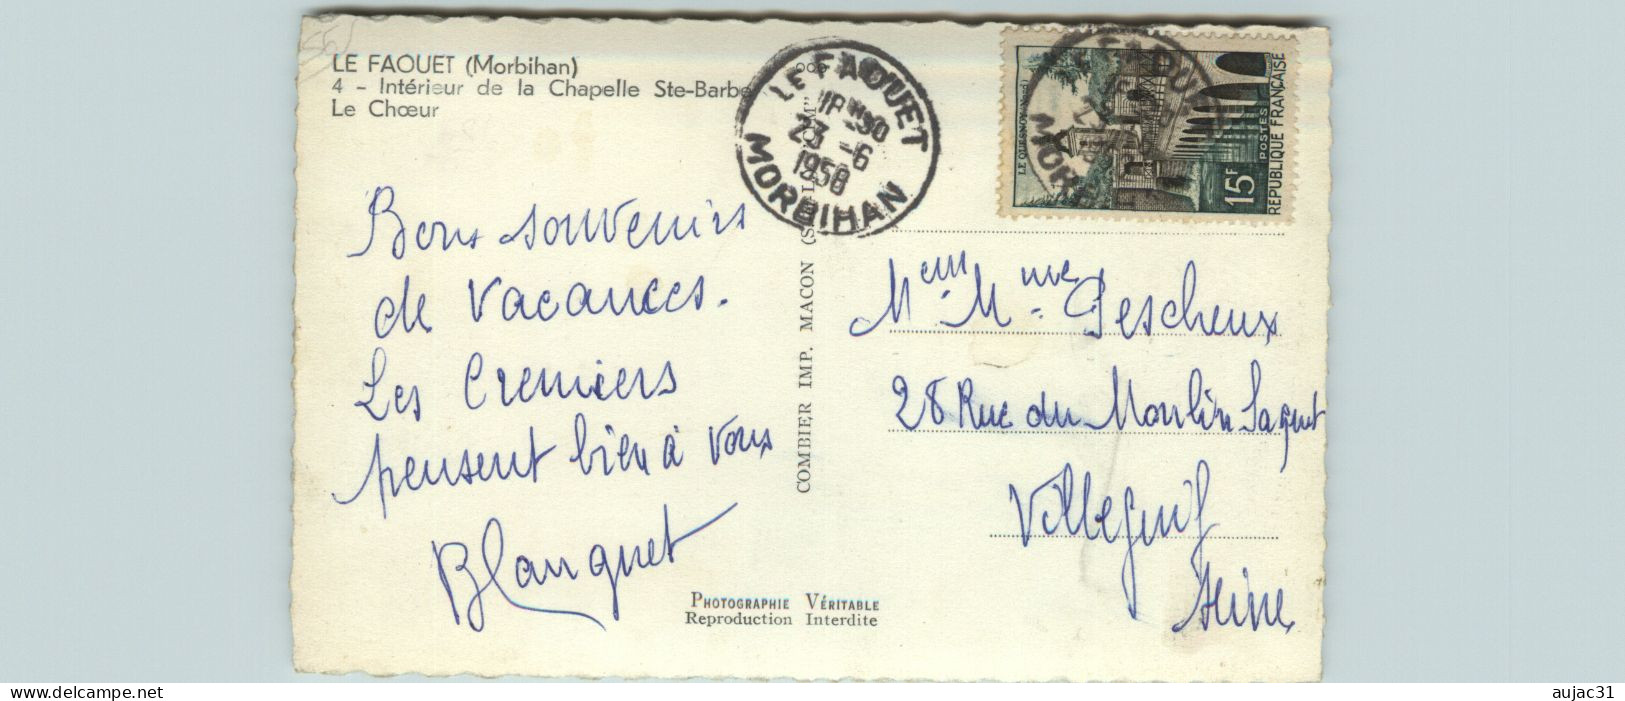 LE FAOUET (Morbihan)
4 - Intérieur de la Chapelle Ste-Barbe
Le Chœur
LE FAOUET
18H30
23 -6
1958
MORBIHAN
LE QUESNOY (Nord)
15F
POSTES
REPUBLIQUE FRANÇAISE
Bons souvenirs
de vacances.
Les Cremiers
pensent bien à vous
Blanquet
COMBIER IMP. MACON
PHOTOGRAPHIE VÉRITABLE
Reproduction Interdite
28 Rue du Moulin Saquet
Villejuif
Seine
www.delcampe.net
aujac31